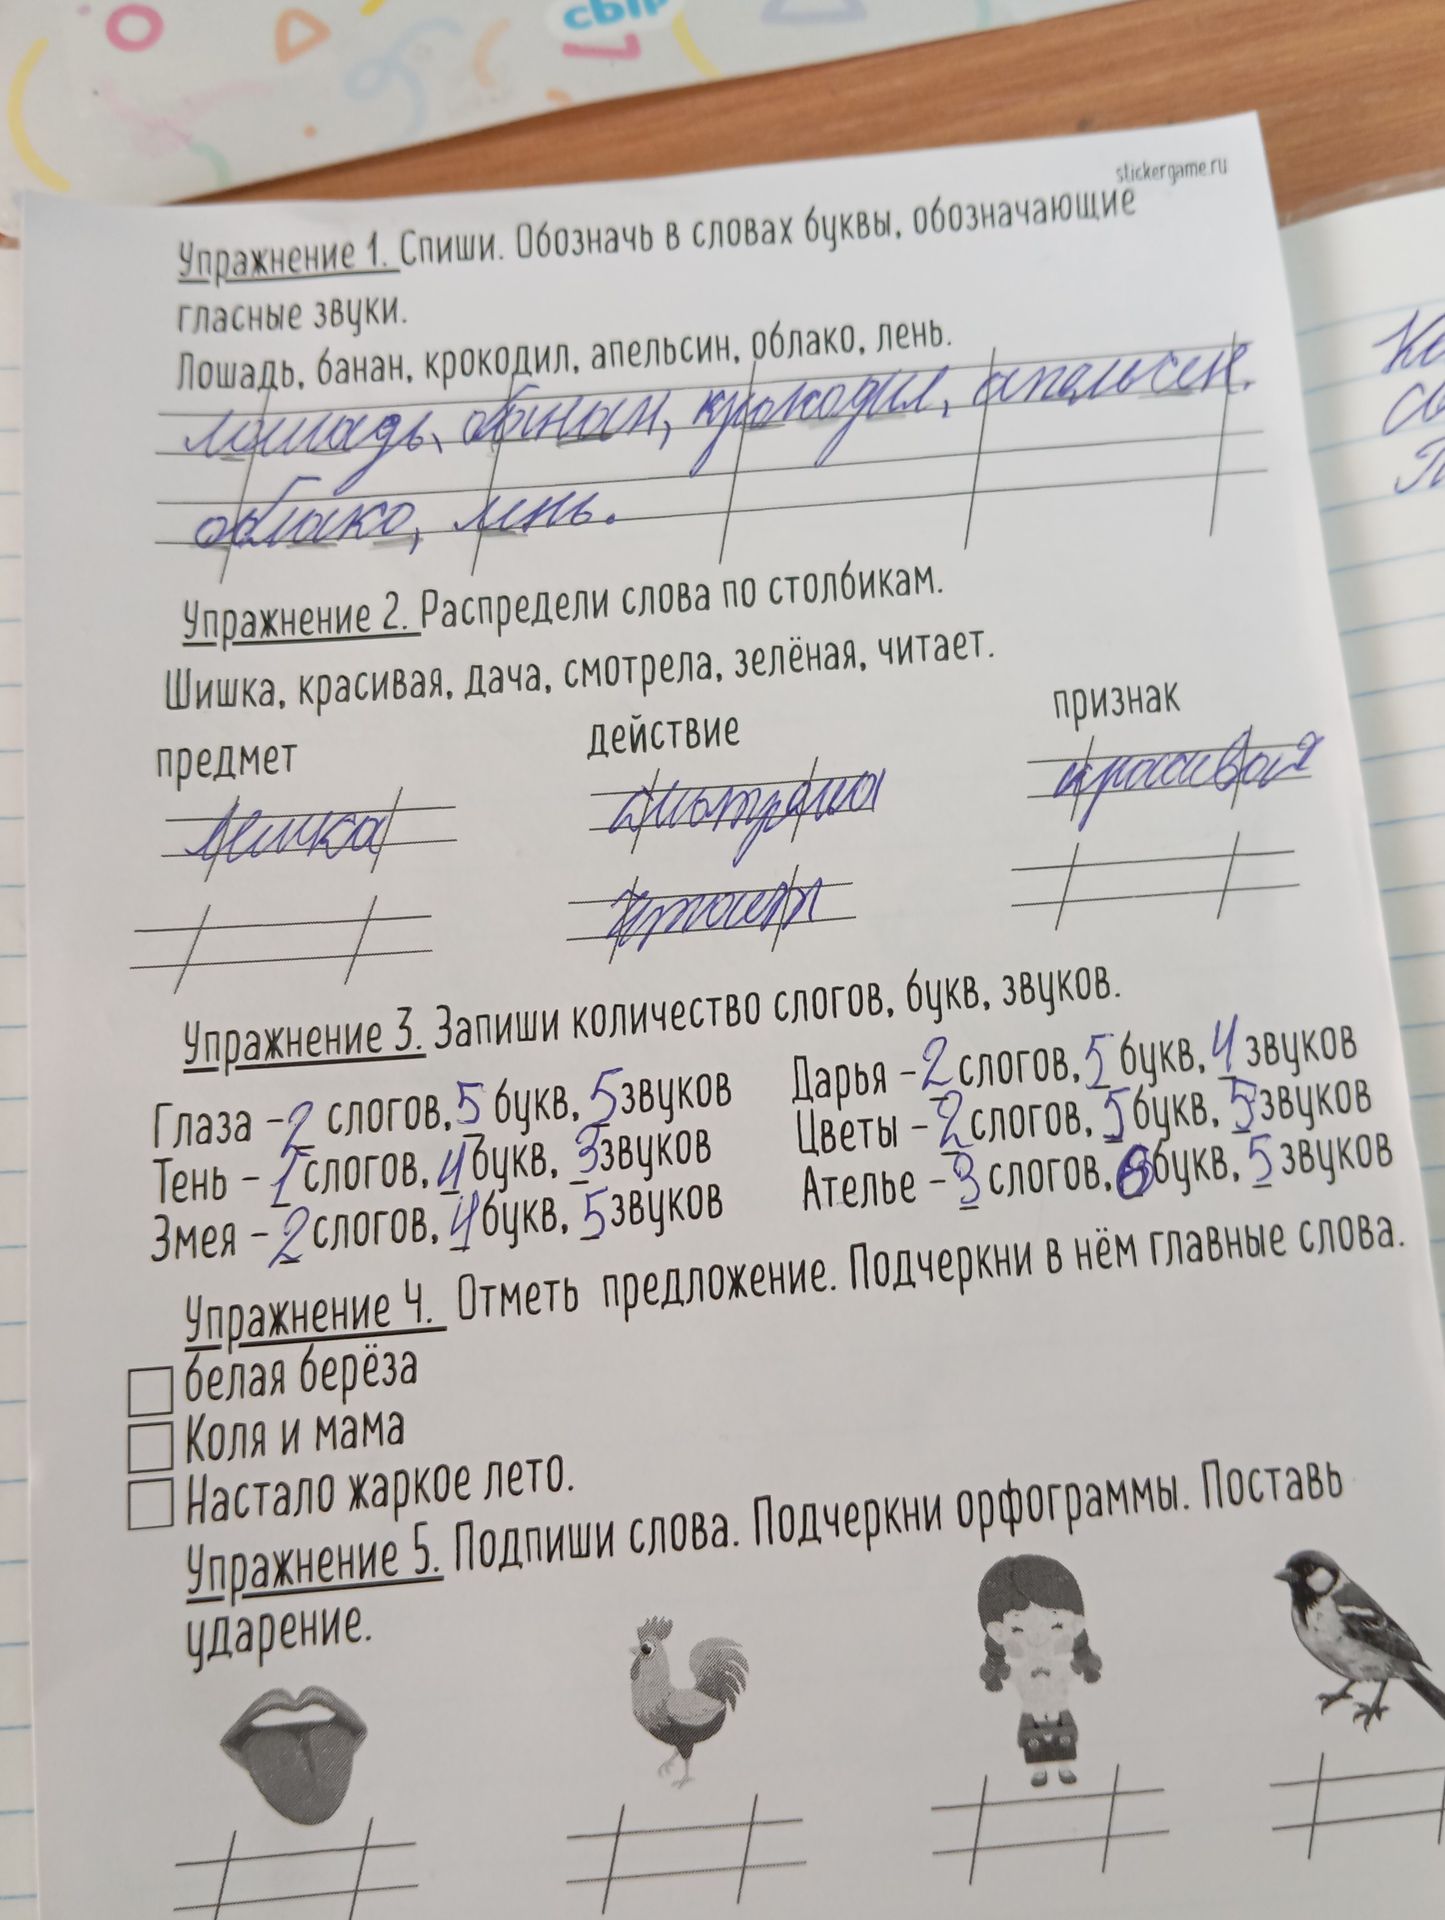 сыр
stickergame.ru
Упражнение 1. Спиши. Обозначь в словах буквы, обозначающие
гласные звуки.
Лошадь, банан, крокодил, апельсин, облако, лень.
лошадь, банан, крокодил, апельсин.
облако, лень.
Упражнение 2. Распредели слова по столбикам.
Шишка, красивая, дача, смотрела, зелёная, читает.
предмет действие признак
шишка смотрела красивая
читает
Упражнение 3. Запиши количество слогов, букв, звуков.
Глаза - 2 слогов, 5 букв, 5 звуков Дарья - 2 слогов, 5 букв, 4 звуков
Тень - 1 слогов, 4 букв, 3 звуков Цветы - 2 слогов, 5 букв, 5 звуков
Змея - 2 слогов, 4 букв, 5 звуков Ателье - 3 слогов, 6 букв, 5 звуков
Упражнение 4. Отметь предложение. Подчеркни в нём главные слова.
белая берёза
Коля и мама
Настало жаркое лето.
Упражнение 5. Подпиши слова. Подчеркни орфограммы. Поставь
ударение.